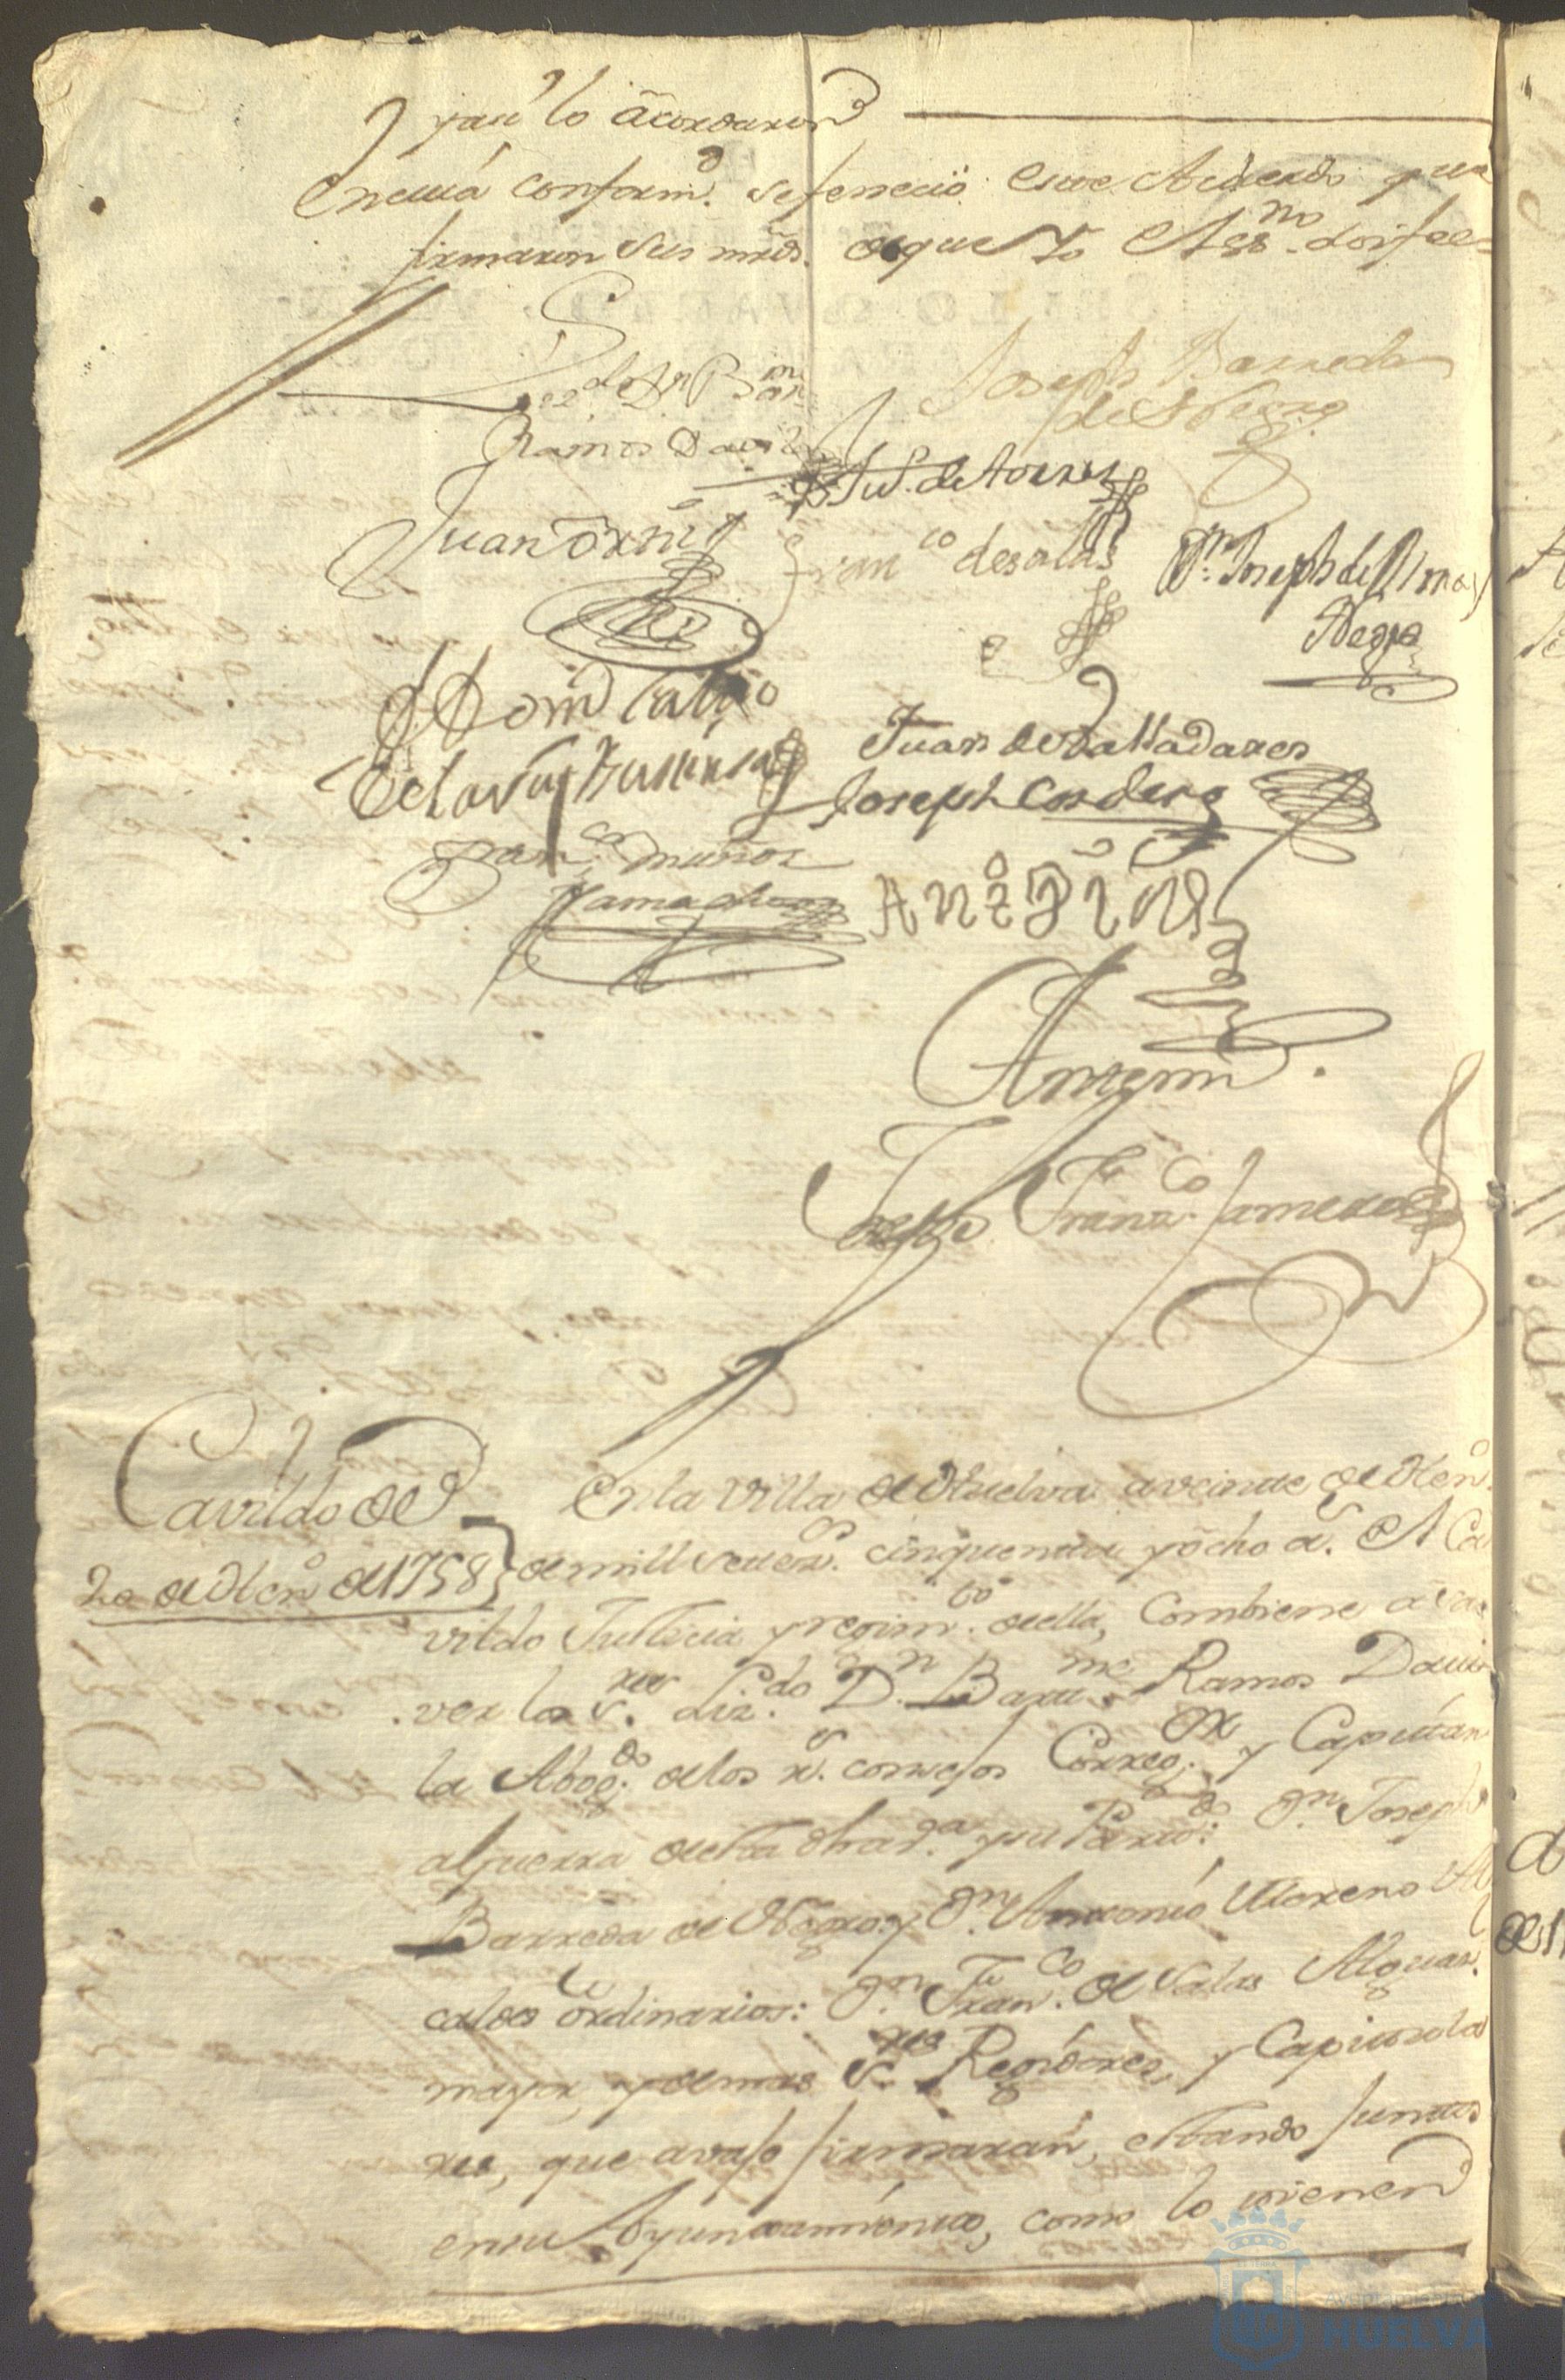 y assi lo acordaron
En cuia conform.d se feneció este Acuerdo que
firmaron sus mrds. de que Yo el Ess.no doi fee=
Liz.do Dn Bar.me
Ramos Davila
Joseph Barreda
de Negro
Ju.o de torres
Juan
Fran.co de salas
Dn. Joseph de
Negro
Juan de Valladares
Joseph Cordero
Fran.co muñoz
Antemi
Joseph Franz.co
Cavildo de
20 de Hen.o de 1758
En la Villa de Huelva a veinte de Hen.o
de mill setez.s cinquenta y ocho a.s El Ca
vildo Justicia y regim.to de ella, Combiene a sa
ver los S.res Liz.do Dn. Bartt.me Ramos Davi
la Abog.do de los r.s consejos Correg.or y Capitan
a guerra de esta dha v.a y su Partido: Dn. Joseph
Barreda de Negro, y Dn. Antonio Moreno Al
caldes ordinarios: Dn. Fran.co de Salas Alguaz.l
mayor, y demas S.res Regidores, y Capitula
res, que avajo firmaran, estando juntos
en su Ayuntamiento, como lo tienen
Ayuntamiento de
HUELVA